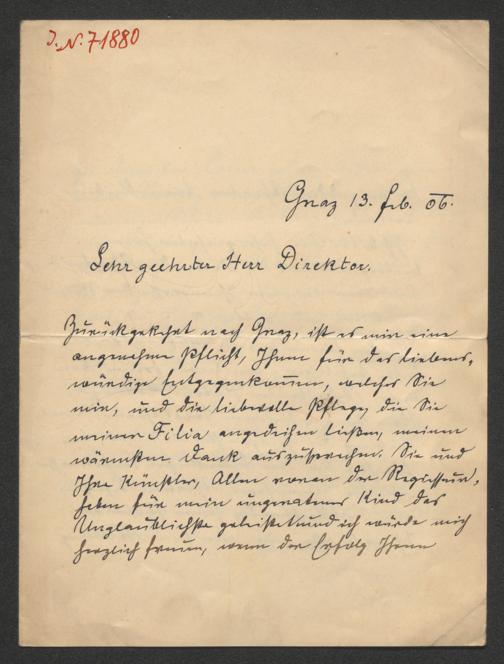 I. N. 71880
Graz 13. Feb. 06.
Sehr geehrter Herr Direktor.
Zurückgekehrt nach Graz, ist es mir eine
angenehme Pflicht, Ihnen für das liebens,
würdige Entgegenkommen, welches Sie
mir, und die liebevolle Pflege, die Sie
meiner Filia angedeihen ließen, meinen
wärmsten Dank auszusprechen. Sie und
Ihre Künstler, Allen voran der Regisseur,
haben für mein ungeratenes Kind das
Unglaublichste geleistet und ich würde mich
herzlich freuen, wenn der Erfolg Ihnen